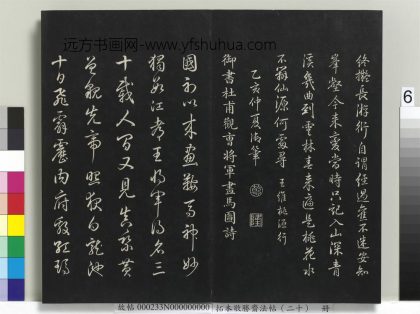 远方书画网-www.yfshuhua.com
終擬長游衍自謂經過舊不迷安知
峯壑今來變當時只記入山深青
溪幾曲到雲林春來遍是桃花水
不辨仙源何處尋 王維桃源行
乙亥仲夏筆
御書杜甫觀曹將軍畫馬圖詩
國初以來畫鞍馬神妙
獨數江都王將軍得名三
十載人間又見真乘黃
曾貌先帝照夜白龍池
十日飛霹靂內府殷紅瑪
故帖 000233N000000000 拓本敬勝齋法帖（二十） 冊